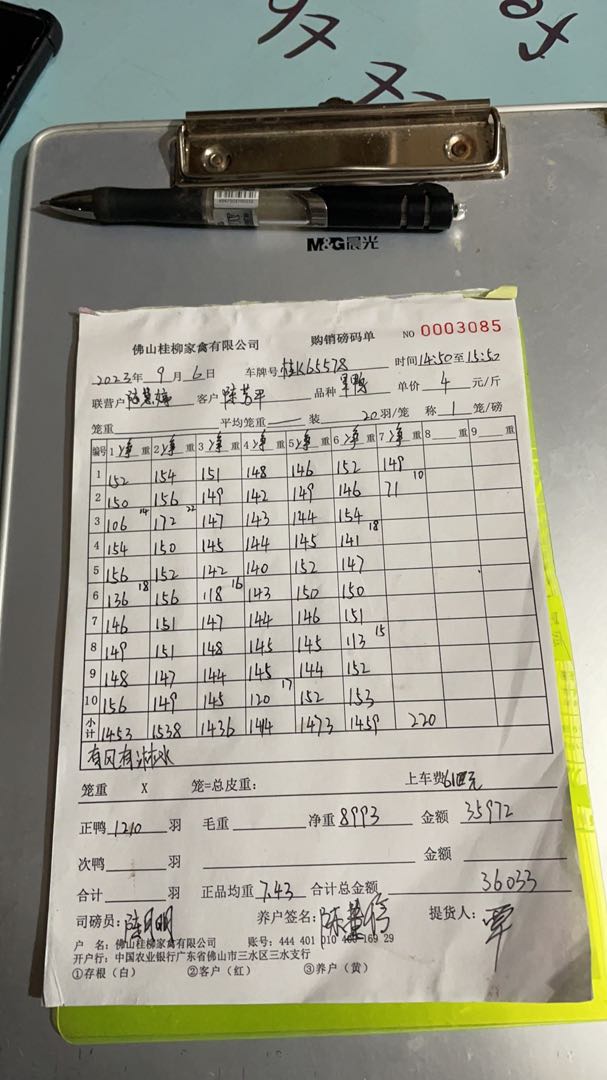 M&G晨光
佛山桂柳家禽有限公司 购销磅码单 NO 0003085
2023年 9月 6日 车牌号 桂K65578 时间14:50至15:50
联营户 客户 陈芳平 品种 单价 4 元/斤
笼重 平均笼重 装 20羽/笼 称 1 笼/磅
编号 1净重 2净重 3净重 4净重 5净重 6净重 7净重 8重 9重
1 152 154 151 148 146 152 149
2 150 156 149 142 149 146 71 10
3 106 14 172 22 147 143 144 154
4 154 150 145 144 145 141 18
5 156 152 142 140 152 147
6 136 18 156 118 16 143 150 150
7 146 151 147 144 146 151
8 149 151 148 145 145 113 15
9 148 147 144 145 144 152
10 156 149 145 120 17 152 153
小计 1453 1538 1436 1414 1473 1459 220
有风有淋水
笼重 X 笼=总皮重: 上车费61元
正鸭 1210 羽 毛重 净重 8993 金额 35972
次鸭 羽 金额
合计 羽 正品均重 7.43 合计总金额 36033
司磅员: 陈明明 养户签名: 提货人: 覃
户 名: 佛山桂柳家禽有限公司 账号: 444 401 010 169 29
开户行: 中国农业银行广东省佛山市三水区三水支行
①存根(白) ②客户(红) ③养户(黄)